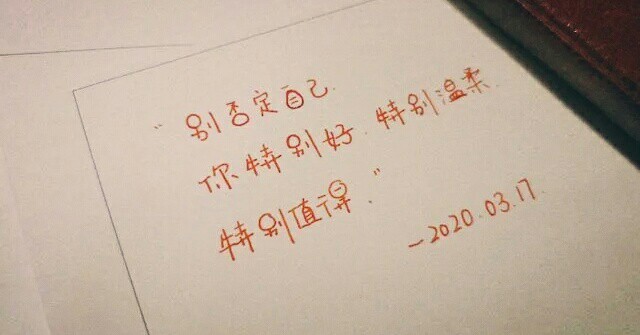 “别否定自己
你特别好.特别温柔.
特别值得.”
-2020.03.17.